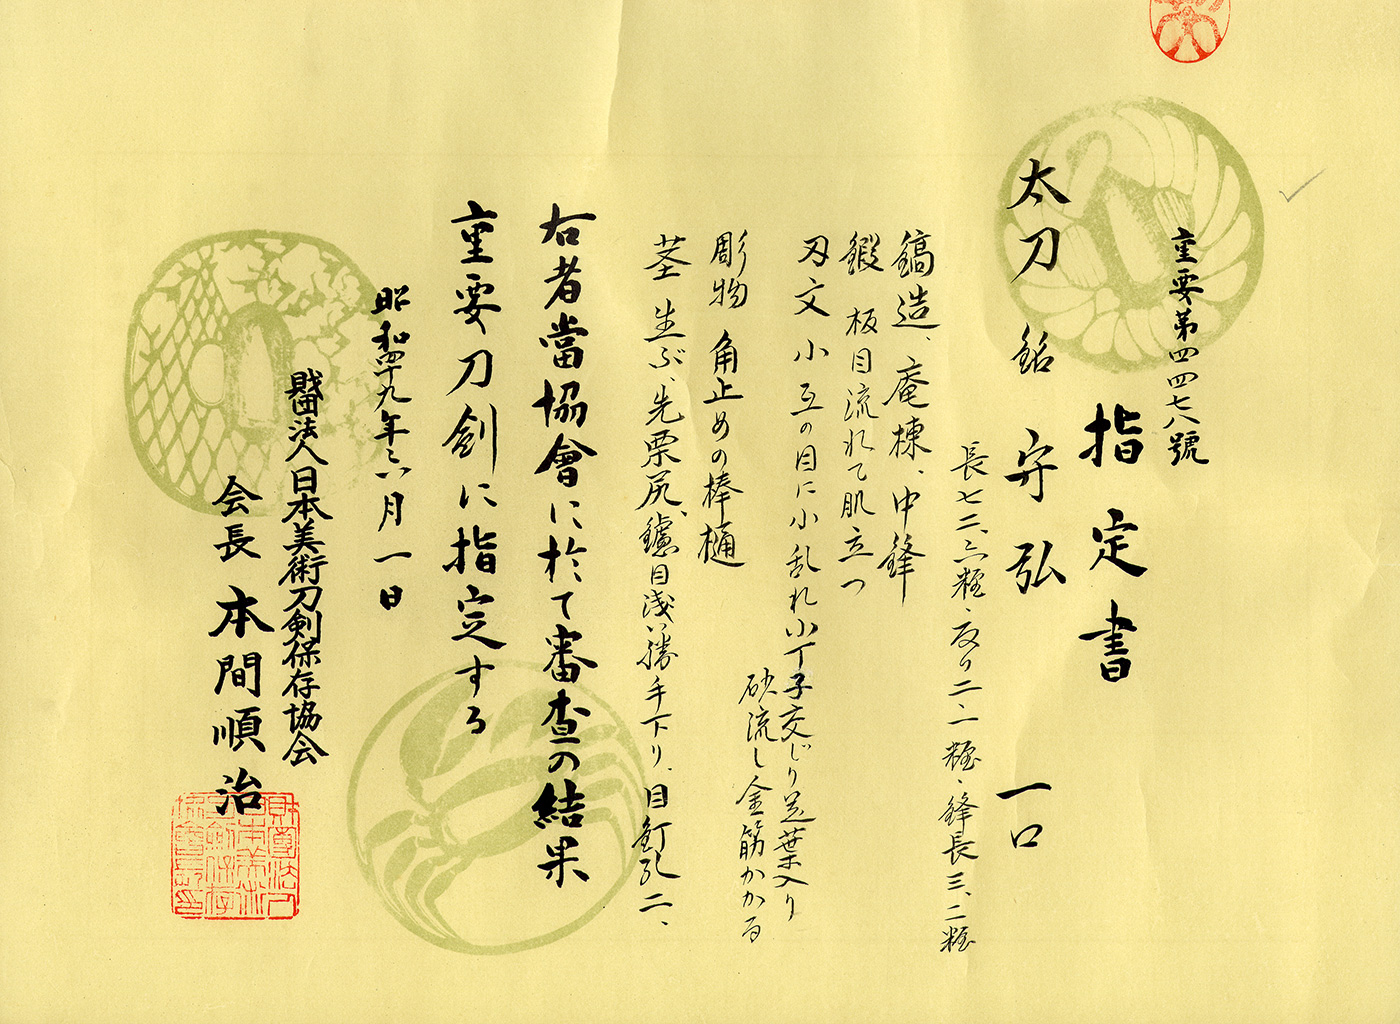 重要第四四七八號
指定書
太刀 銘 守弘 一口
長七二、六糎、反り二、一糎、鋒長三、二糎
鎬造、庵棟、中鋒
鍛 板目流れて肌立つ
刃文 小互の目に小乱れ小丁子交じり足葉入り
砂流し金筋かかる
彫物 角止めの棒樋
茎 生ぶ、先栗尻、鑢目浅い勝手下り、目釘孔二、
右者當協會に於て審査の結果
重要刀剣に指定する
昭和四十九年六月一日
財団法人日本美術刀剣保存協会
会長 本間順治